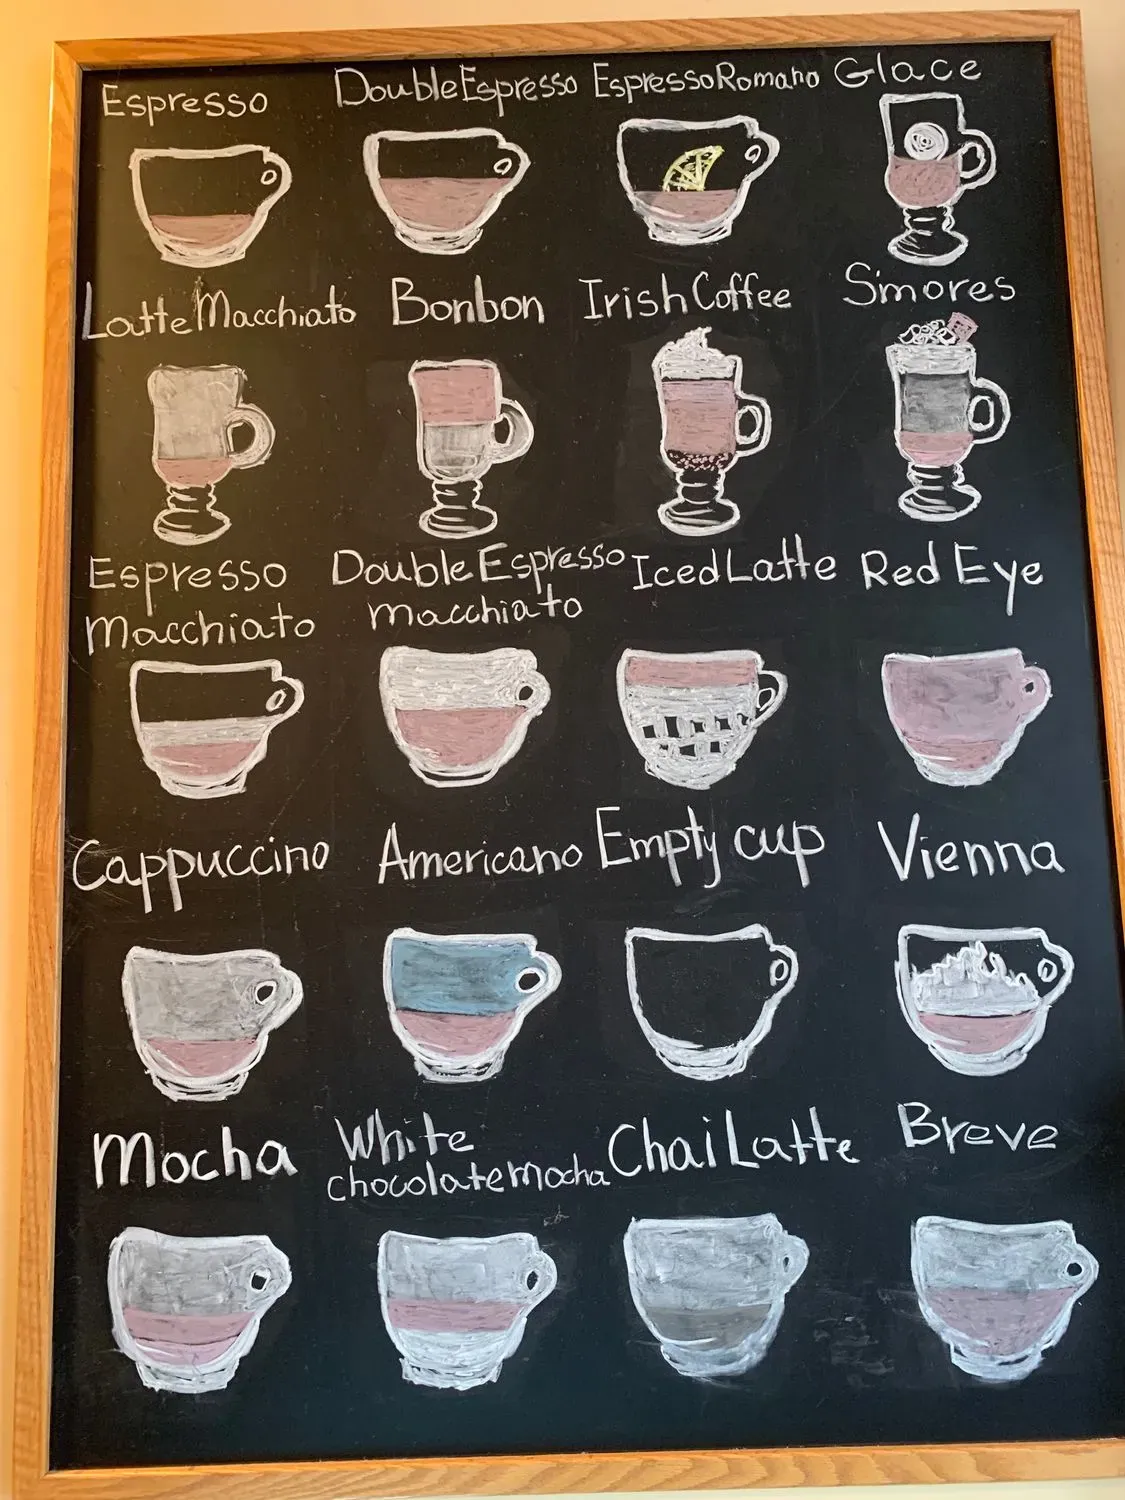 Espresso
Double Espresso
Espresso Romano
Glace
Latte Macchiato
Bonbon
Irish Coffee
S'mores
Espresso
Macchiato
Double Espresso
Macchiato
Iced Latte
Red Eye
Cappuccino
Americano
Empty cup
Vienna
Mocha
White
chocolate Mocha
Chai Latte
Breve